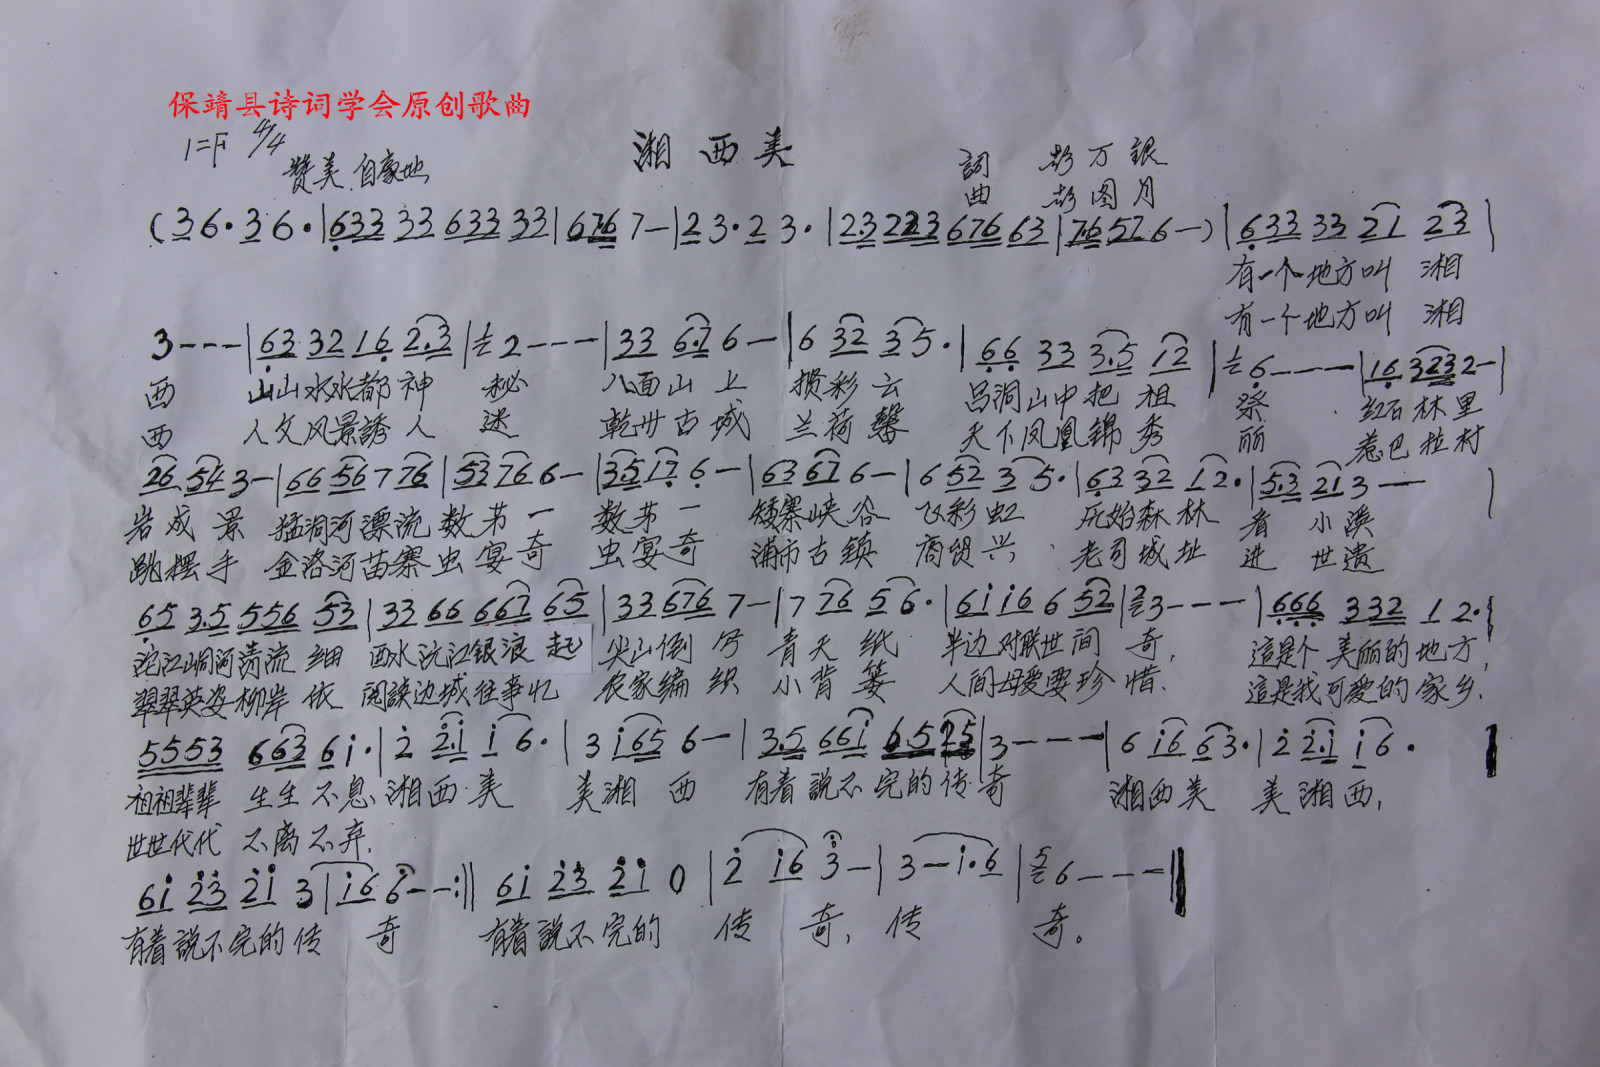 保靖县诗词学会原创歌曲
1=F 4/4
赞美 自豪地
湘西美
詞 彭万银
曲 彭图月
(3 6· 3 6·|633 33 633 33|6766 7—|2 3· 2 3·|23 223 676 63|76 57 6—)|633 33 21 23|
有一个地方叫 湘
有一个地方叫 湘
3---|63 32 16 2.3|2---|33 6.7 6—|6 32 35·|66 33 3.5 12|6---|16 3232—|
西 山山水水都神 秘 八面山上 摸彩云 吕洞山中把祖 祭 红石林里
西 人文风景誘人 迷 乾州古城 兰荷馨 天下凤凰錦秀 丽 惹巴拉村
26 54 3—|66 56 7 76|53 76 6—|35 17 6—|63 67 6—|6 52 3 5·|63 32 1 2·|5.3 21 3——|
岩成景 猛洞河漂流数茅一 数茅一 矮寨峡谷 飞彩虹 原始森林 看小溪
跳摆手 金洛河苗寨虫宴奇 虫宴奇 浦市古镇 商贸兴 老司城址 进世遗
65 3.5 556 53|33 66 667 65|33 676 7—|7 76 5 6·|6i i6 6 52|3---|666 332 1 2·|
沱江峒河清流细 酉水沅江银浪起 尖山倒写 青天纸 半边对联世间 奇, 這是个美丽的地方,
翠翠英姿柳岸依 阅读边城往事忆 农家编织 小背篓 人间母爱要珍惜. 這是我可爱的家乡.
5553 663 6i·|2 2.i i 6·|3 i65 6—|3.5 66i 6.5 25|3---|6 i6 6 3·|2 2.i i 6·
祖祖辈辈 生生不息 湘西美 美湘西 有着説不完的传奇 湘西美 美湘西,
世世代代 不离不弃.
6i 23 2i 3|i6 6——:‖ 6i 23 2i 0|2 i6 3—|3—i·6|6---‖
有着説不完的传 奇 有着説不完的 传 奇, 传 奇。